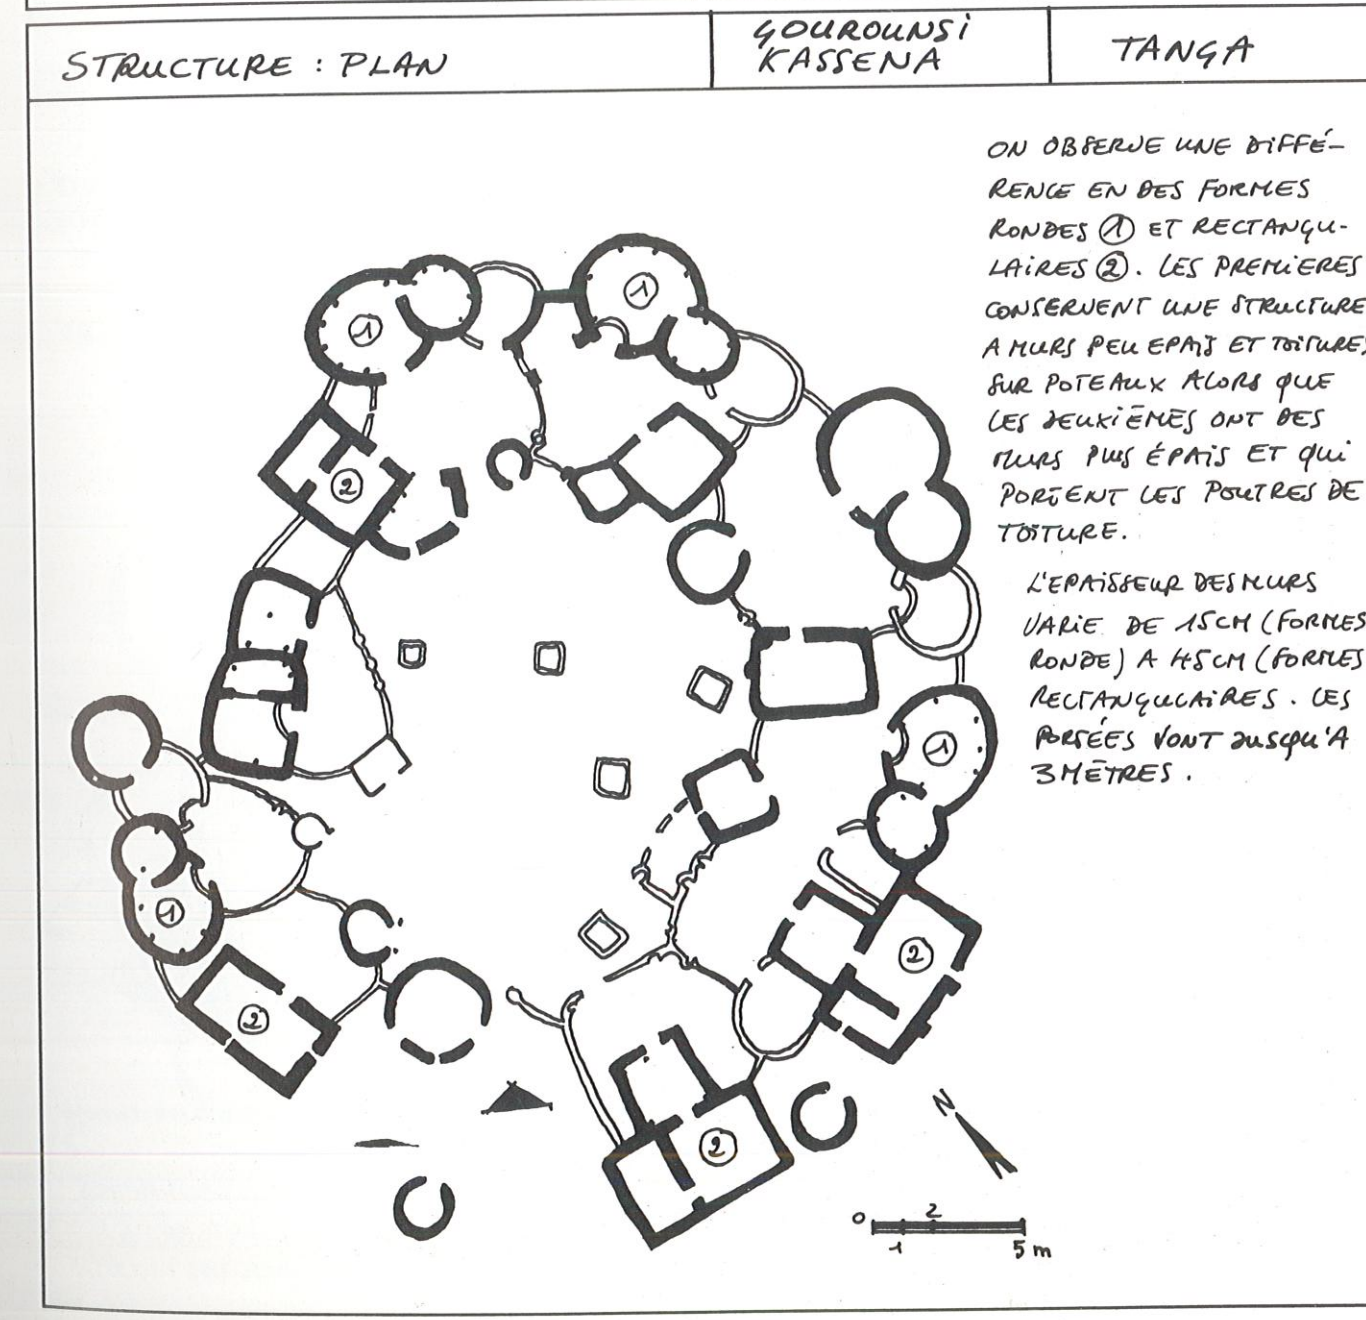 STRUCTURE : PLAN
GOUROUNSI
KASSENA
TANGA
ON OBSERVE UNE DIFFÉ-
RENCE EN DES FORMES
RONDES ① ET RECTANGU-
LAIRES ②. LES PREMIERES
CONSERVENT UNE STRUCTURE
A MURS PEU EPAIS ET TOITURES
SUR POTEAUX ALORS QUE
LES DEUXIÈMES ONT DES
MURS PLUS ÉPAIS ET QUI
PORTENT LES POUTRES DE
TOITURE.
L'EPAISSEUR DES MURS
VARIE DE 15CM (FORMES
RONDE) A 45CM (FORMES
RECTANGULAIRES. LES
PORTÉES VONT JUSQU'A
3 MÈTRES.
1
1
2
1
1
2
2
2
N
0 2
1 5 m